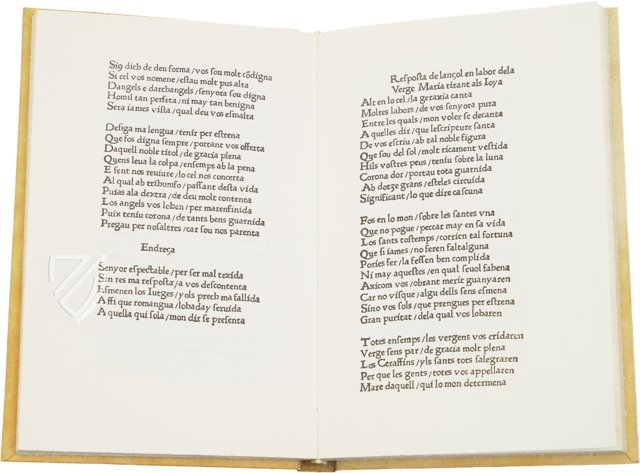 Sig dich de deu forma / vos sou molt cõdigna
Si cel vos nomene / estau molt pus alta
Dangels e darchangels / senyora sou digna
Homil tan perfeta / ni may tan benigna
Sera iames vista / qual deu vos esmalta
Desiga ma lengua / tenir per estrena
Que fos digna sempre / portant vos offerta
Daquell noble titol / de gracia plena
Quens leua la colpa / ensemps ab la pena
E fent nos reuiure / lo cel nos concerta
Al qual ab triumfo / passant desta vida
Puias ala dextra / de deu molt contenta
Los angels vos loben / per marenfinida
Puix teniu corona / de tants bens guarnida
Pregau per nosaltres / car sou nos parenta
Endreça
Senyor espectable / per ser mal texida
Sin res ma resposta / a vos descontenta
Esmenen los Iutges / yols prech ma fallida
Affi que romangua / lohaday seruida
A quella qui sola / mon dir se presenta
Resposta de lançol en labor dela
Verge Maria tirant als Ioya
Alt en lo cel / la geraxia canta
Moltes labors / de vos senyora pura
Entre les quals / mon voler se decanta
A quelles dir / que lescripture santa
De vos estriu / ab tal noble figura
Que sou del sol / molt ricament vestida
Hils vostres peus / teniu sobre la luna
Corona dor / portau tota guarnida
Ab dotze grans / esteles circuida
Significant / lo que dire cascuna
Fos en lo mon / sobre les santes vna
Que no pogue / peccar may en sa vida
Los sants tostemps / corrien tal fortuna
Que si iames / no feren falt alguna
Pories fer / la fessen ben complida
Ni may aquestes / en qual seuol fahena
Axicom vos / obrant merit guanyaren
Car no visque / algu dells sens esmena
Sino vos sols / que prengues per estrena
Gran puritat / dela qual vos lobaren
Totes ensemps / les vergens vos cridaren
Verge sens par / de gracia molt plena
Los Ceraffins / yls sants tots salegraren
Per que les gents / totes vos appellaren
Mare daquell / qui lo mon determena